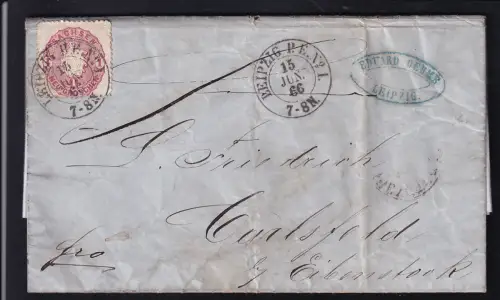 SACHSEN
LEIPZIG P.E. No 1
15
JUN.
66
7-8N.
LEIPZIG P.E. No 1
15
JUN.
66
7-8N.
EDUARD
LEIPZIG.
Friedrich
Carlsfeld
b/ Eibenstock
fro